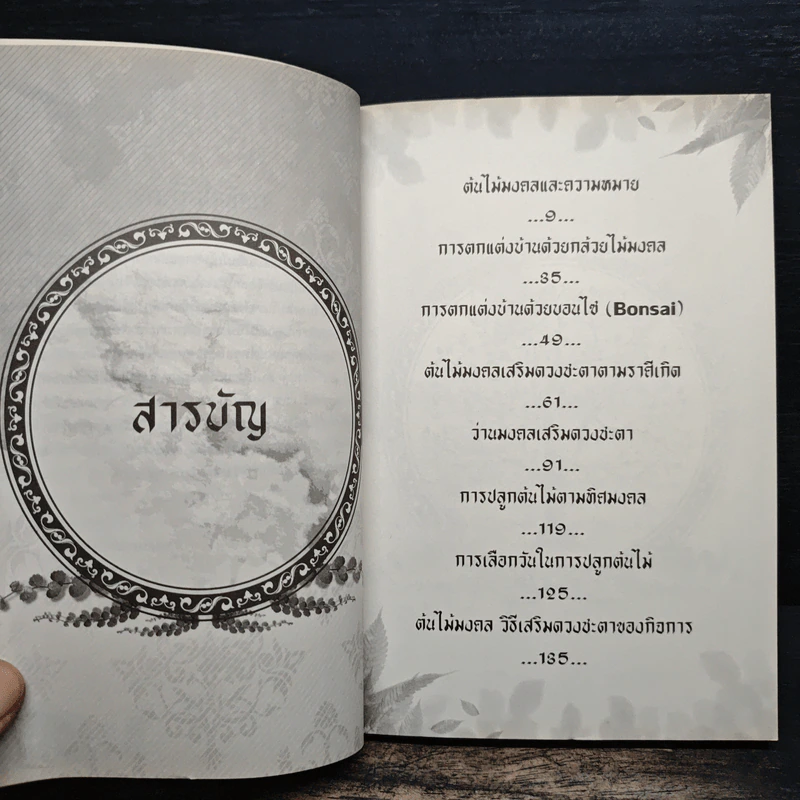 สารบัญ
ต้นไม้มงคลและความหมาย
...9...
การตกแต่งบ้านด้วยกล้วยไม้มงคล
...35...
การตกแต่งบ้านด้วยบอนไซ่ (Bonsai)
...49...
ต้นไม้มงคลเสริมดวงชะตาตามราศีเกิด
...61...
ว่านมงคลเสริมดวงชะตา
...91...
การปลูกต้นไม้ตามทิศมงคล
...119...
การเลือกวันในการปลูกต้นไม้
...125...
ต้นไม้มงคล วิธีเสริมดวงชะตาของกิจการ
...135...